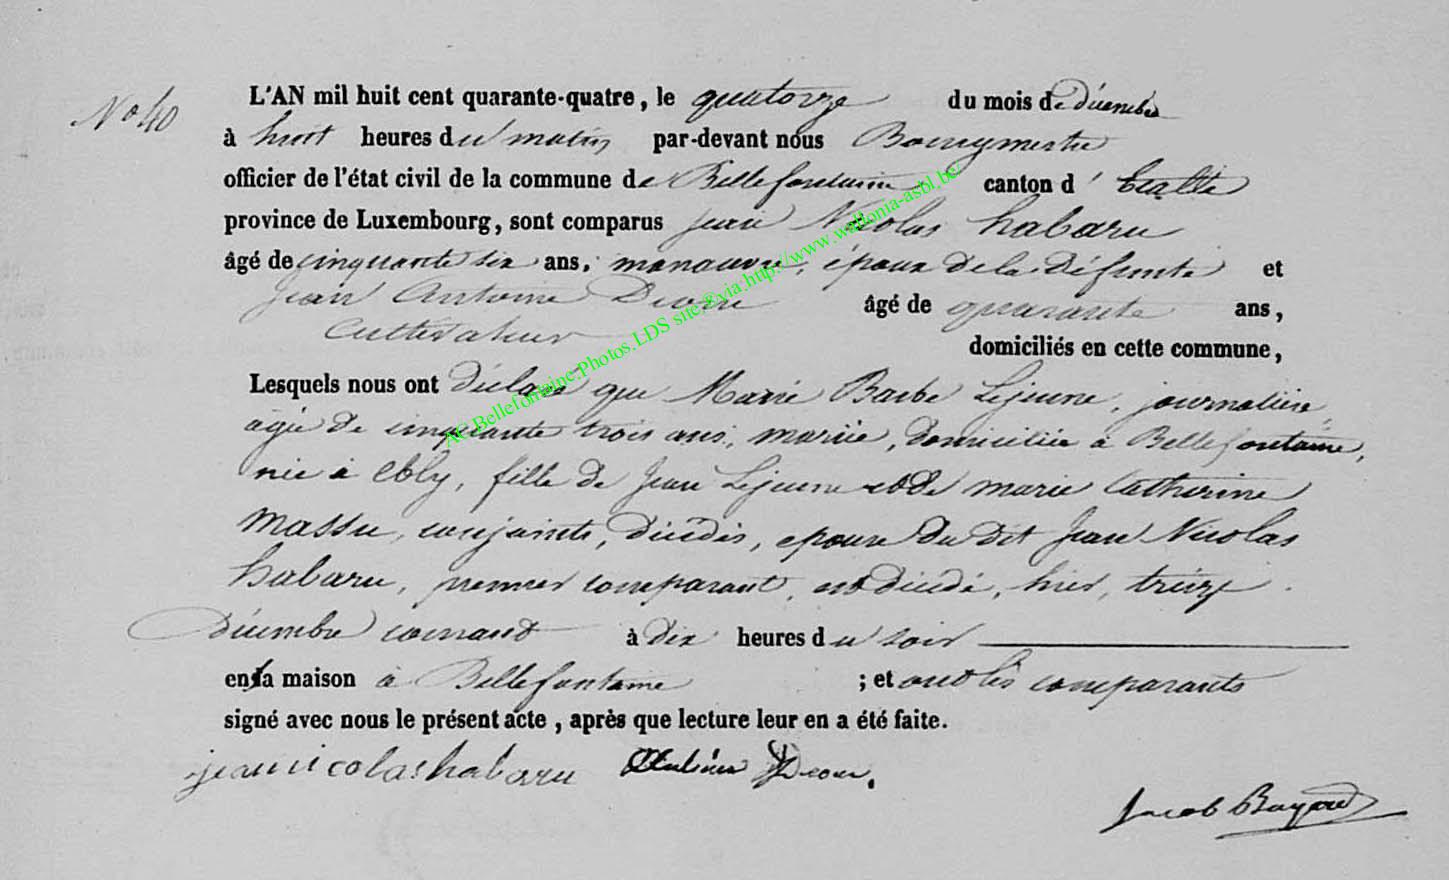 No 40
L'AN mil huit cent quarante-quatre, le quatorze du mois de décembre
à huit heures du matin par-devant nous Bourgmestre
officier de l'état civil de la commune de Bellefontaine canton d'Etalle
province de Luxembourg, sont comparus Jean Nicolas habaru
âgé de cinquante six ans, manœuvre, époux de la défunte et
Jean Antoine âgé de quarante ans,
Cultivateur domiciliés en cette commune,
Lesquels nous ont déclaré que Marie Barbe Lejeune, journalière,
agée de cinquante trois ans, mariée, domiciliée à Bellefontaine,
née à Ebly, fille de Jean Lejeune et de marie Catherine
Massu, conjoints, décédés, epouse du dit Jean Nicolas
habaru, premier comparant, est décédé, hier, treize
Décembre courant à dix heures du soir
en sa maison à Bellefontaine ; et ont les comparants
signé avec nous le présent acte, après que lecture leur en a été faite.
jean nicolas habaru
Jacob Bayard
AC.Bellefontaine.Photos.LDS site.©via:http://www.wallonia-asbl.be/